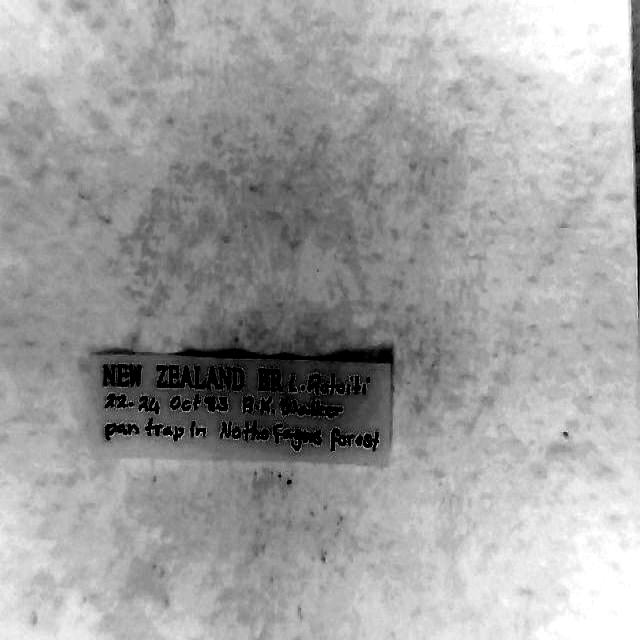 NEW ZEALAND BR L. Rotoiti
22-24 Oct 93 B.K.
pan trap in Nothofagus forest